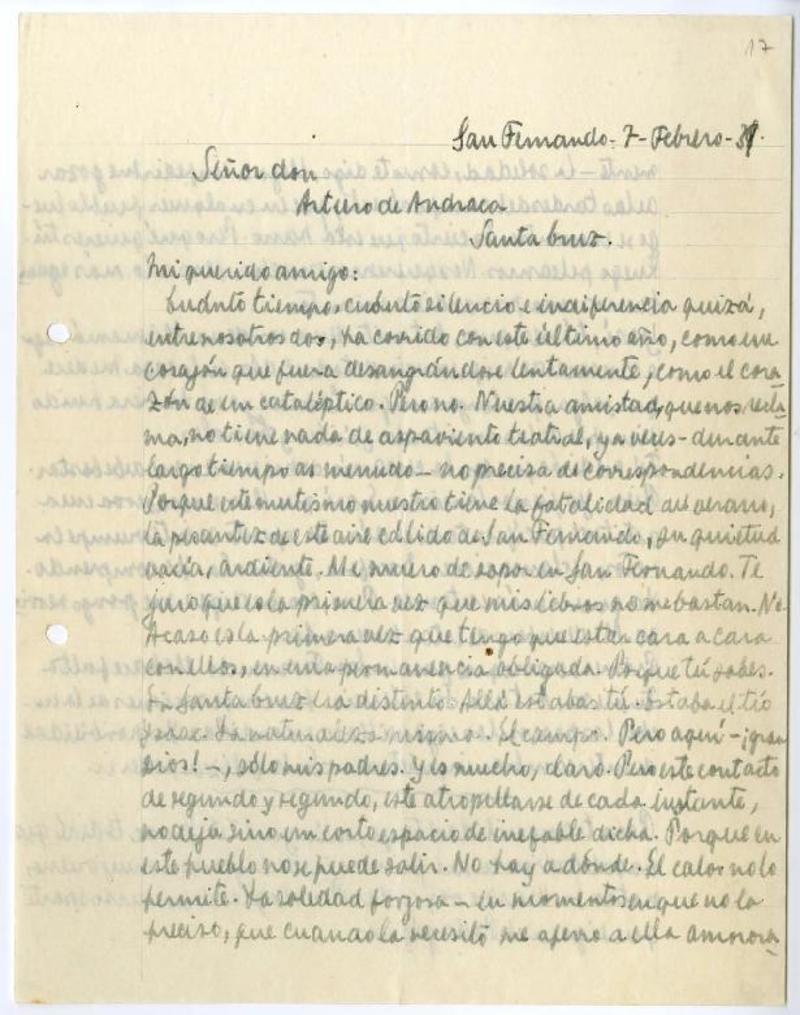 17
San Fernando-7-Febrero-39.
Señor don
Arturo de Andraca
Santa bruz.
Mi querido amigo:
Cuánto tiempo, cuánto silencio e indiferencia quizá,
entre nosotros dos, ha corrido con este último año, como un
corazón que fuera desangrándose lentamente, como el cora-
zón de un cataléptico. Pero no. Nuestra amistad, que nos recla-
ma, no tiene nada de aspaviento teatral, y a veces - durante
largo tiempo a menudo - no precisa de correspondencias.
Porque este mutismo nuestro tiene la fatalidad del verano,
la pesantez de este aire cálido de San Fernando, su quietud
vacía, ardiente. Me muero de sopor en San Fernando. Te
juro que es la primera vez que mis libros no me bastan.
Acaso es la primera vez que tengo que estar cara a cara
con ellos, en una permanencia obligada. Porque tú sabes.
En Santa bruz era distinto. Allá estabas tú. Estaba el tío
Isaac. La naturaleza misma. El campo. Pero aquí - ¡gran
Dios! -, sólo mis padres. Y es mucho, claro. Pero este contacto
de segundo y segundo, este atropellarse de cada instante,
no deja sino un corto espacio de inefable dicha. Porque en
este pueblo no se puede salir. No hay a dónde. El calor no lo
permite. La soledad forzosa - en momentos en que no la
preciso, que cuando la necesitó me aferro a ella amorosa-